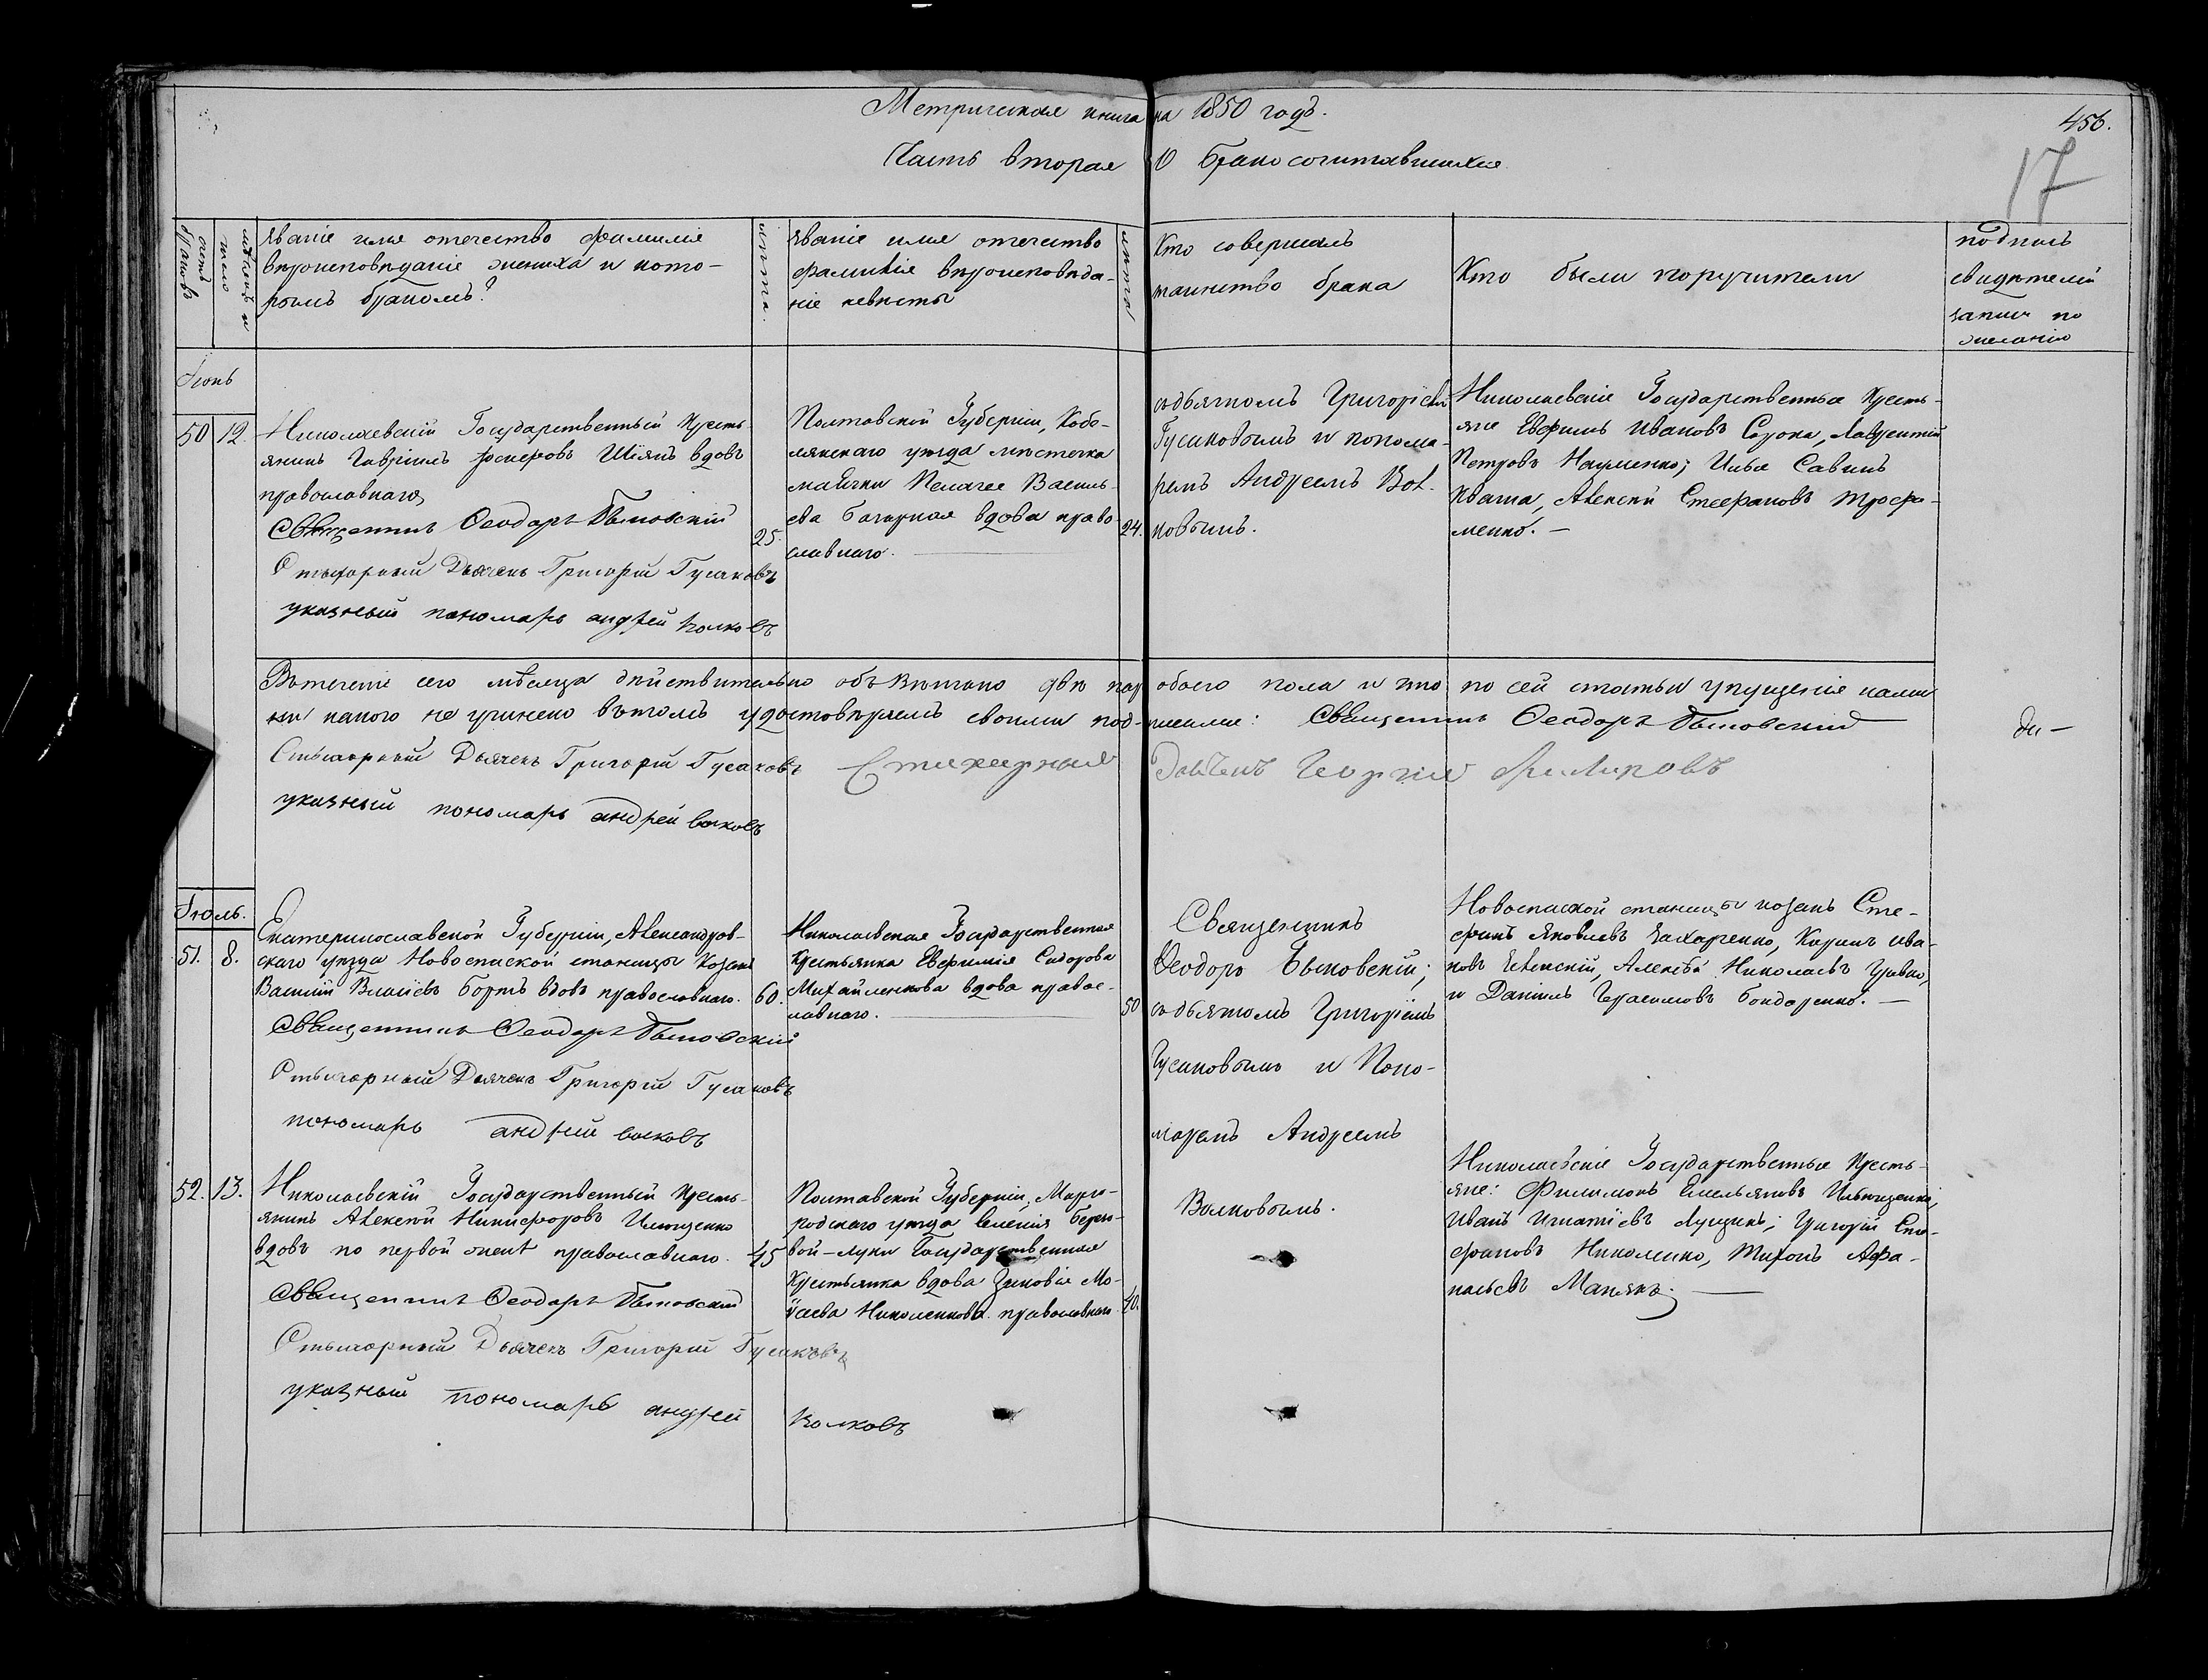 Метрическая книга на 1850 годъ.
456.
17
Часть вторая О бракосочитавшихся
Званіе имя отечество фамилія
вѣроисповѣданіе жениха и кото-
рымъ бракомъ?
лѣта.
Званіе имя отечество
фамилія вѣроисповѣда-
ніе невѣсты
лѣта
Кто совершалъ
таинство брака
Кто были поручители
подпись
свидѣтелей
записи по
желанію
Іюнь
50 12.
Николаевскій Государственный Кресть
янинъ Гавріилъ вдовъ
православнаго
Священникъ Ѳеодоръ Быковскій
Стыхарный Дьячекъ Григорій Гусаковъ
указный пономарь андрей волковъ
25.
Полтавской Губерніи, Кобе-
лякскаго уѣзда мѣстечка
маячки Пелагея Василь-
ева вдова право-
славнаго.
24.
съ дьячкомъ Григоріемъ
Гусаковымъ и понома-
ремъ Андреемъ Вол-
ковымъ.
Николаевскіе Государственные Кресть-
яне Евфимъ Ивановъ Сорока, Лаврентій
Петровъ Науменко; Илья Савинъ
Кваша, Алексѣй Стефановъ Трофи-
менко. —
Въ теченіе сего мѣсяца дѣйствительно объвѣнчано двѣ пары обоего пола и что по сей статьи упущенія нами
ни какого не учинено въ томъ удостовѣряемъ своими под-писами: Священникъ Ѳеодоръ Быковскій
Стыхарный Дьячекъ Григорій Гусаковъ Стихарный Дьячекъ Георгій Филиповъ
указный пономарь андрей волковъ
Іюль.
51. 8.
Екатеринославской Губерніи, Александров-
скаго уѣзда Новоспаской станицы Козакъ
Василій Власіевъ Бортъ вдовъ православнаго. 60.
Священникъ Ѳеодоръ Быковскій
Стыхарный Дьячекъ Григорій Гусаковъ
пономарь андрей волковъ
Николаевская Государственная
Крестьянка Евфимія Сидорова
Михайленкова вдова правос-
лавнаго.
50
Священникъ
Ѳеодоръ Быковскій;
съ дьячкомъ Григоріемъ
Гусаковымъ и Поно-
маремъ Андреемъ
Волковымъ.
Новоспаской станицы козакъ Сте-
фанъ Яковлевъ Захарченко, ива-
новъ Алексѣй Николаевъ
и Даніилъ Герасимовъ Бондаренко. —
52. 13.
Николаевскій Государственный Кресть-
янинъ Алексѣй Никифоровъ Илющенко
вдовъ по первой женѣ православнаго. 45
Священникъ Ѳеодоръ Быковскій
Стыхарный Дьячекъ Григорій Гусаковъ
указный пономарь андрей волковъ
Полтавской Губерніи, Мирго-
родскаго уѣзда селенія Бере-
вой-луки Государственная
Крестьянка вдова Зиновія Мо-
ѵсеева Николенкова православнаго.
40.
Николаевскіе Государственные Кресть-
яне: Филимонъ Емельяновъ Ильющенко,
Иванъ Игнатіевъ Лущикъ; Григорій Сте-
фановъ Николенко, Тихонъ Афа-
насьевъ Манякъ. —